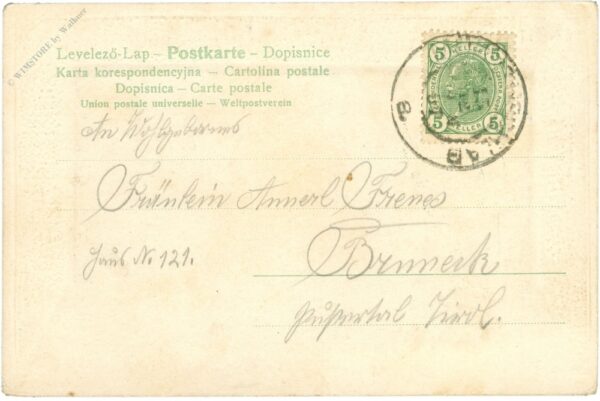 © WIMSTORE by Wallner
Levelező-Lap – Postkarte – Dopisnice
Karta korespondencyjna – Cartolina postale
Dopisnica – Carte postale
Union postale universelle – Weltpostverein
An Wohlgebornes
Fräulein Annerl Frenes
Haus No. 121.
Bruneck
Pustertal Tirol.
5 HELLER 5
5 HELLER 5
8